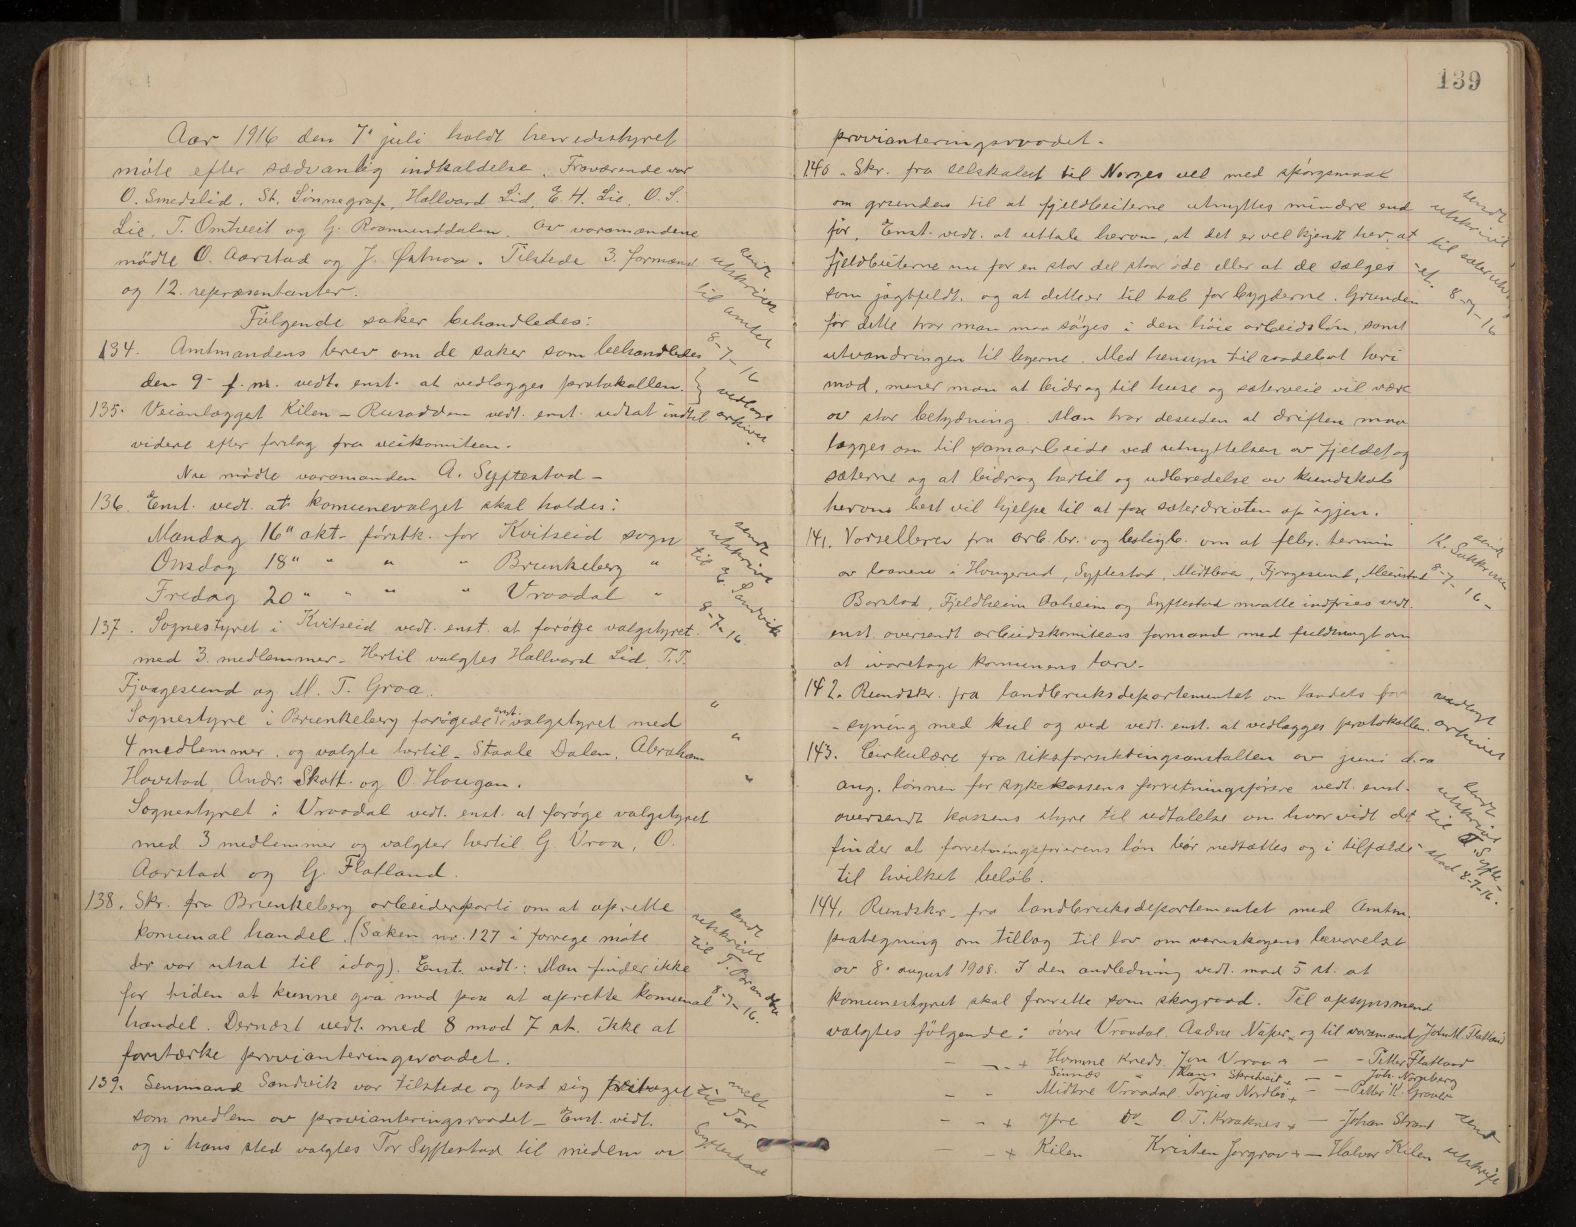 Aar 1916 den 7' juli holdt herredsstyret
møte efter sædvanlig indkaldelse. Fraværende var
O. Smedslid, St. Lønnegrav, Hallvard Lid, E. H. Lie, O. S.
Lie, T. Omtveit og G. Roamunddalen. Av varamændene
mødte O. Aarstad og J. Østnoa. Tilstede 3. formænd
og 12. repræsentanter.
Følgende saker behandledes:
134. Amtmandens brev om de saker som behandledes
den 9- f. m. vedt. enst. at vedlægges protokollen.
135. Veianlægget Kilen – Rusaddem vedt. enst. utsat indtil
videre efter forslag fra veikomiteen.
Nu mødte varamanden A. Syftestad –
136. Enst. vedt. at komunevalget skal holdes:
Mandag 16" okt. førstk. for Kvitseid sogn
Onsdag 18" " " " Brunkeberg "
Fredag 20" " " " Vraadal "
137. Sognestyret i Kvitseid vedt. enst. at forøge valgstyret
med 3 medlemmer. Hertil valgtes Hallvard Lid, T. T.
Fjaagesund og M. T. Groa.
Sognestyre i Brunkeberg forøgede enst. valgstyret med
4 medlemmer, og valgte hertil – Staale Dalen, Abraham
Havstad, Andr. Skott og O. Haugan.
Sognestyret i Vraadal vedt. enst. at forøge valgstyret
med 3 medlemmer og valgter hertil G. Vraa, O.
Aarstad og G. Flatland.
138. Skr. fra Brunkeberg arbeiderparti om at oprette
komunal handel. (Saken nr. 127 i forrege møte
der var utsat til idag). Enst. vedt.: Man finder ikke
for tiden at kunne gaa med paa at oprette komunal
handel. Dernæst vedt. med 8 mod 7 st. ikke at
forstærke provianteringsraadet.
139. Lensmand Sandvik var tilstede og bad sig fritaget
som medlem av provianteringsraadet – Enst. vedt.
og i hans sted valgtes Tor Syftestad til medlem av
sendt
utskrivt
til amtet
8-7-16
vedlagt
arkivet.
sendt
utskrivt
til E. Sandvik
8-7-16.
"
"
"
sendt
utskrivt
til T. Brandsli
8-7-16.
melt
til Tor
Syftestad
139
provianteringsraadet.
140. Skr. fra selskapet til Norges vel med spørgsmaal
om grunden til at fjeldbeiterne utnyttes mindre end
før. Enst. vedt. at uttale herom, at det er vel kjendt her, at
fjeldbeiterne nu for en stor del staar øde eller at de sælges
som jagtfeldt, og at dette er til tab for bygderne. Grunden
for dette tror man maa søges i den høie arbeidsløn, samt
utvandringen til byerne. Med hensyn til raadebot heri
mod, mener man at bidrag til huse og sæterveie vil være
av stor betydning. Man tror desuden at driften maa
lægges om til samarbeide ved utnyttelsen av fjeldet og
sæterne og at bidrag hertil og udbredelse av kundskab
herom best vil hjelpe til at faa sæterdriften op igjen.
141. Varsellbrev fra arb. br. og boligb. om at febr. termin
av laanene i Haugerud, Syftestad, Midtboe, Fjaagesund, Meeistad
Barstad, Fjeldheim Aaheim og Syftestad maatte indfries vedt.
enst. oversendt arbeidskomiteens formand med fuldmagt om
at ivaretage komunens tarv.
142. Rundskr. fra landbruksdepartementet om landets for
-syning med kul og ved vedt. enst. at vedlægges protokollen.
143. Cirkulære fra riksforsikringsanstalten av juni d. aa
ang. lønnen for sykekassens forretningsførere vedt. enst.
oversendt kassens styre til udtalelse om hvorvidt det
finder at forretningsførerens løn bør nedsættes og i tilfælde
til hvilket beløb.
144. Rundskr. fra landbruksdepartementet med Amtm.
paategning om tillæg til lov om værnskogens bevarelse
av 8. august 1908. I den anledning vedt. mod 5 st. at
komunestyret skal forrette som skograad. Til opsynsmænd
valgtes følgende: øvre Vraadal. Aadne Næper, og til varamand John M. Flatland
– – + Homme Kreds. Jon Vraa + – – Petter Flatland
Sinnes " Hans Skreiveit + – – Joh. Nornberg
– – Midtre Vraadal Torjus Nordbø + – – Petter K. Graver
– – + Ytre do O. T. Kraaknes + – Johan Strand
– – + Kilen Kristen Jorgrav + – Halvor Kilen
sendt
utskrivt
til sæterutvalg
-et. 8-7-16
sendt
K. Sukkersen
8-7-16-
vedlagt
arkivet
sendt
utskrivt
til T. Syfte-
stad 8-7-16.
sendt
utskrift